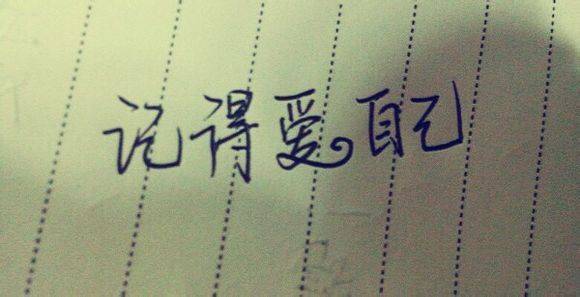 记得爱自己